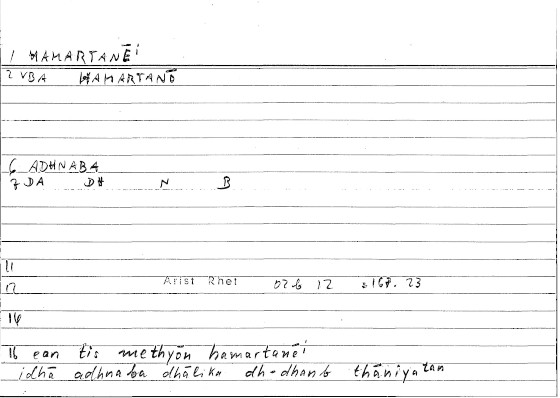 1 HAMARTANĒi
2 VBA HAMARTANŌ
6 ADHNABA
7 DA DH N B
11
12 Arist Rhet 0726 12 168. 23
14
16 ean tis methyōn hamartanēi
idhā adhnaba dhālika dh-dhanb thāniyatan